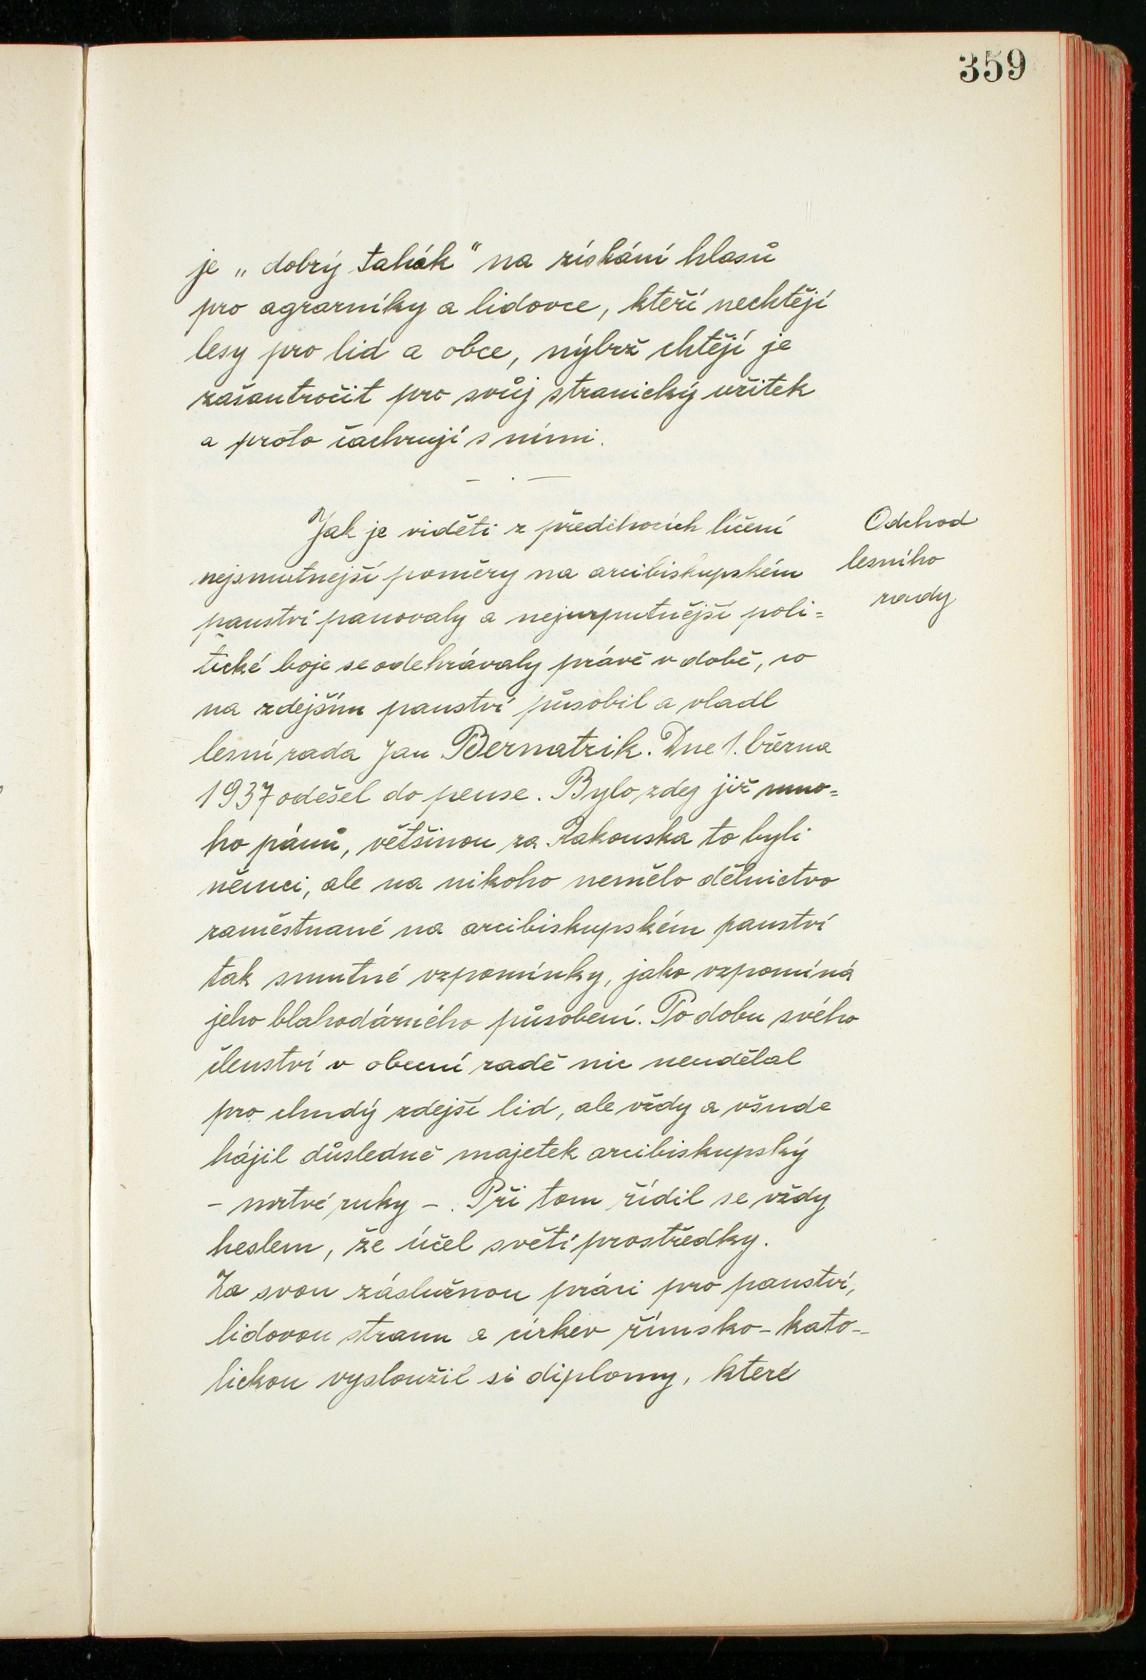 359
je „dobrý tahák" na získání hlasů
pro agrarníky a lidovce, kteří nechtějí
lesy pro lid a obce, nýbrž chtějí je
zašantročit pro svůj stranický užitek
a proto čachrují s nimi.
Jak je viděti z předchozích líčení
nejsmutnejší poměry na arcibiskupském
panství panovaly a nejurputnější poli=
tické boje se odehrávaly právě v době, co
na zdejším panství působil a vladl
lesní rada Jan Bernatzik. Dne 1. března
1937 odešel do pense. Bylo zdej již mno=
ho pánů, většinou za Rakouska to byli
němci, ale na nikoho nemělo dělnictvo
zaměstnané na arcibiskupském panství
tak smutné vzpomínky, jako vzpomíná
jeho blahodárného působení. Po dobu svého
členství v obecní radě nic neudělal
pro chudý zdejší lid, ale vždy a všude
hájil důsledně majetek arcibiskupský
– mrtvé ruky –. Při tom řídil se vždy
heslem, že účel světí prostředky.
Za svou záslužnou práci pro panství,
lidovou stranu a církev římsko-kato-
lickou vysloužil si diplomy, které
Odchod
lesního
rady